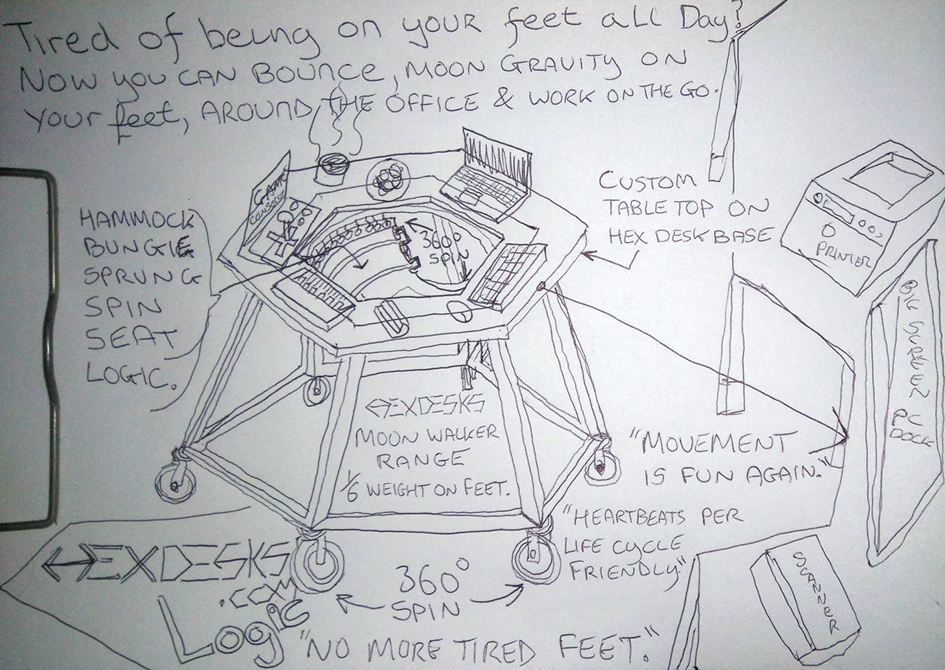 Tired of being on your feet all Day?
NOW YOU CAN BOUNCE, MOON GRAVITY ON
YOUR feet, AROUND THE OFFICE & WORK ON THE GO.
HAMMOCK
BUNGIE
SPRUNG
SPIN
SEAT
LOGIC.
GAME
CONSOLE
360°
SPIN
CUSTOM
TABLE TOP ON
HEX DESK BASE
PRINTER
BIG SCREEN
PC
DOCK
HEXDESKS
MOON WALKER
RANGE
1/6 WEIGHT ON FEET.
"MOVEMENT
IS FUN AGAIN."
"HEARTBEATS PER
LIFE CYCLE
FRIENDLY"
SCANNER
HEXDESKS
.COM
Logic
360°
SPIN
"NO MORE TIRED FEET."